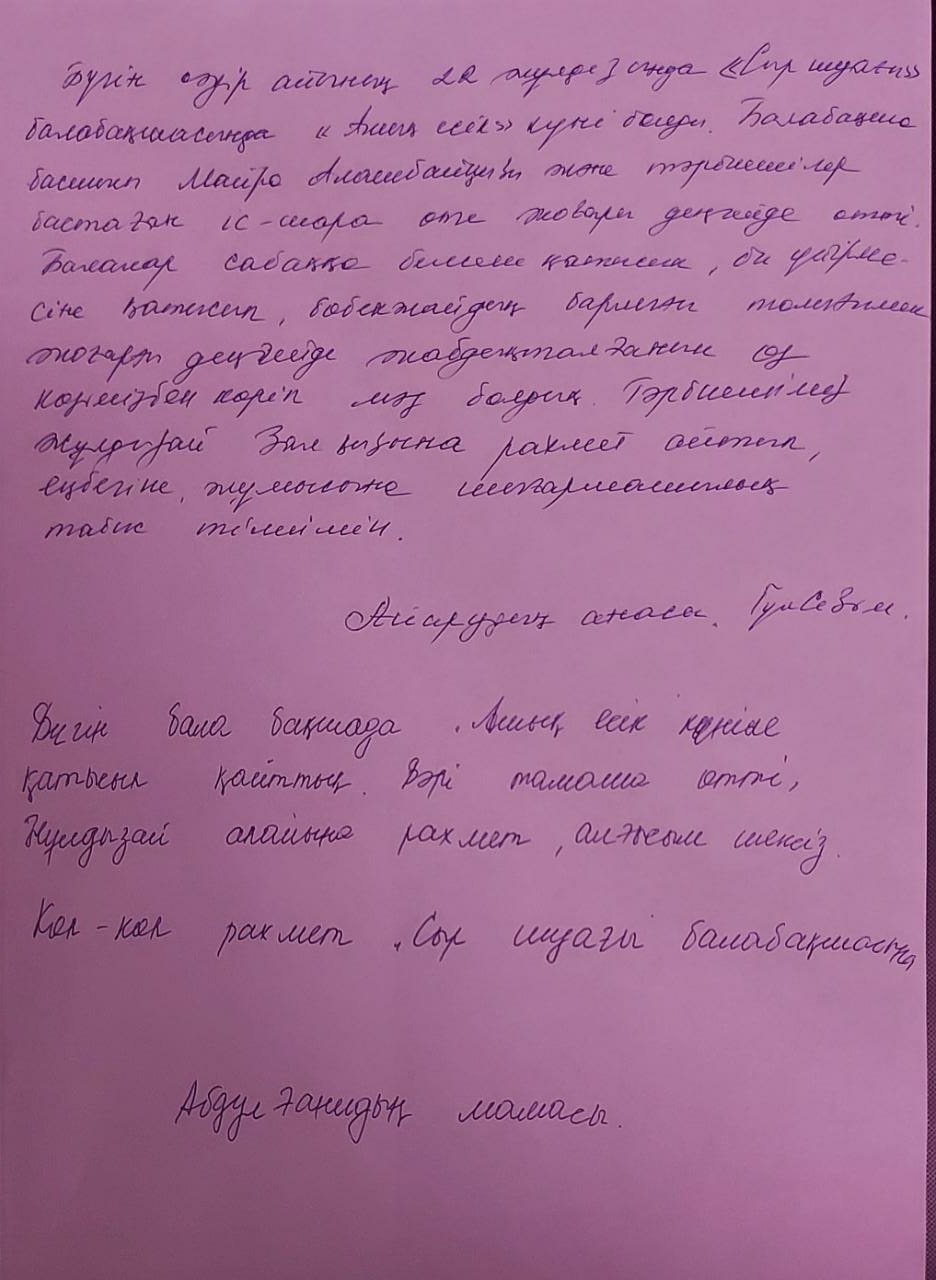 Бүгін сәуір айының 22 жұлдызында «Сыр шуағы»
балабақшасында «Ашық есік» күні болды. Балабақша
басшысы Майра Алашбайқызы және тәрбиешілер
бастаған іс-шара өте жоғары деңгейде өтті.
Балалар сабаққа белсене қатысып, би үйірме-
сіне қатысып, бөбекжайдың барлығы толығымен
жоғары деңгейде жабдықталғанын өз
көзімізбен көріп мәз болдық. Тәрбиешіміз
Жұлдызай қызына рахмет айтып,
еңбегіне, жұмысына шығармашылық
табыс тілеймін.
Айарудың анасы. ГүлСезім.
Бүгін бала бақшада "Ашық есік күніне
қатысып қайттық. Бәрі тамаша өтті,
Жұлдызай апайына рахмет, алғысым шексіз.
Көп-көп рахмет "Сыр шуағы балабақшасына
Абдулғанидың мамасы.